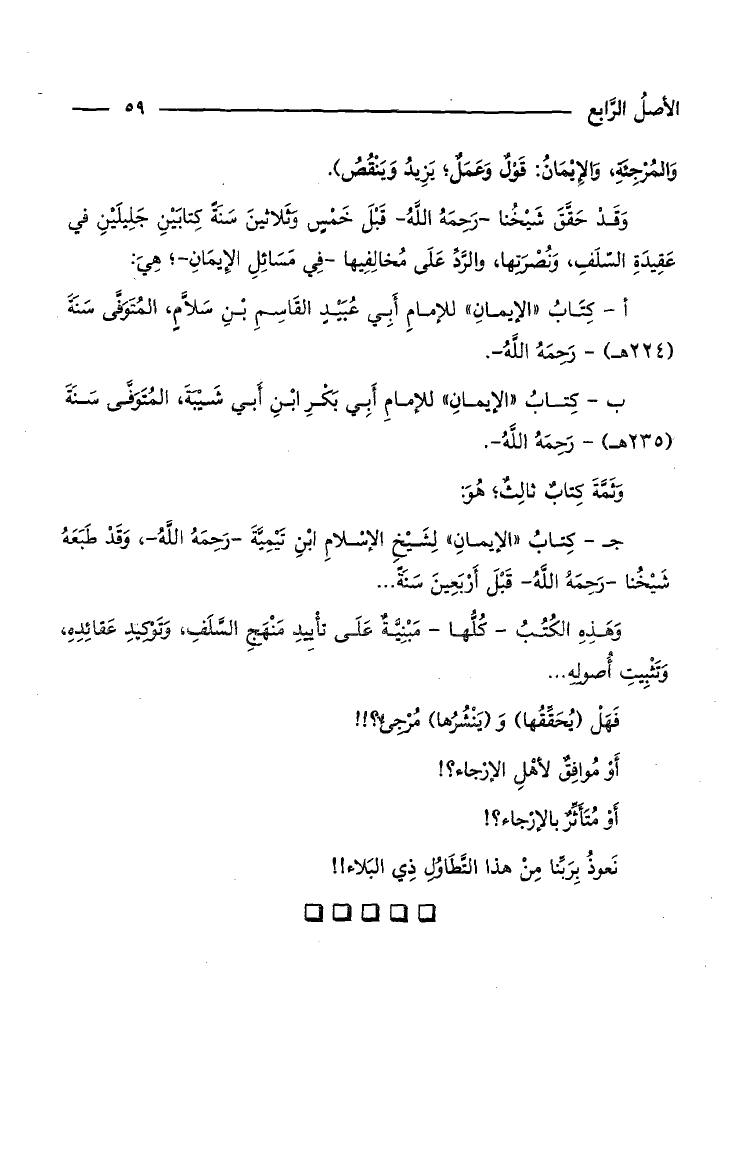 الأصلُ الرَّابع ٥٩
وَالمُرْجِئَةِ، وَالإِيْمَانُ: قَوْلٌ وَعَمَلٌ؛ يَزِيدُ وَيَنْقُصُ).
وَقَـدْ حَقَّقَ شَيْخُنا -رَحِمَهُ اللَّهُ- قَبْلَ خَمْسٍ وَثَلاثينَ سَنَةً كِتابَيْنِ جَلِيلَيْنِ في
عَقِيدَةِ السَّلَفِ، وَنُصْرَتِها، والرَّدِّ عَلَى مُخالِفِيها -فِي مَسَائِلِ الإِيمَانِ-؛ هِيَ:
أ - كِتَـابُ «الإيمـانِ» للإمـامِ أَبِـي عُبَيْـدٍ القَاسِـمِ بْـنِ سَـلاَّمٍ، المُتَوَفَّى سَنَةَ
(٢٢٤هـ) - رَحِمَهُ اللَّهُ-.
ب - كِتـابُ «الإيمـانِ» للإمـامِ أَبِـي بَكْـرِ ابْـنِ أَبـي شَـيْبَةَ، المُتَوَفَّـى سَـنَةَ
(٢٣٥هـ) - رَحِمَهُ اللَّهُ-.
وَثَمَّةَ كِتابٌ ثالِثٌ؛ هُوَ:
جـ - كِتـابُ «الإيمـانِ» لِشَـيْخِ الإسْـلامِ ابْنِ تَيْمِيَّةَ -رَحِمَهُ اللَّهُ-، وَقَدْ طَبَعَهُ
شَيْخُنا -رَحِمَهُ اللَّهُ- قَبْلَ أَرْبَعِينَ سَنَةً...
وَهَـذِهِ الكُتُـبُ - كُلُّهـا - مَبْنِيَّـةٌ عَلَـى تأْييدِ مَنْهَجِ السَّلَفِ، وَتَوْكِيدِ عَقائِدِهِ،
وَتَثْبِيتِ أُصولِهِ...
فَهَلْ (يُحَقِّقُها) وَ (يَنْشُرُها) مُرْجِئٌ؟!!
أَوْ مُوافِقٌ لأَهْلِ الإرْجاءِ؟!
أَوْ مُتَأَثِّرٌ بالإرْجاءِ؟!
نَعوذُ بِرَبِّنا مِنْ هذا التَّطاوُلِ ذِي البَلاءِ!!